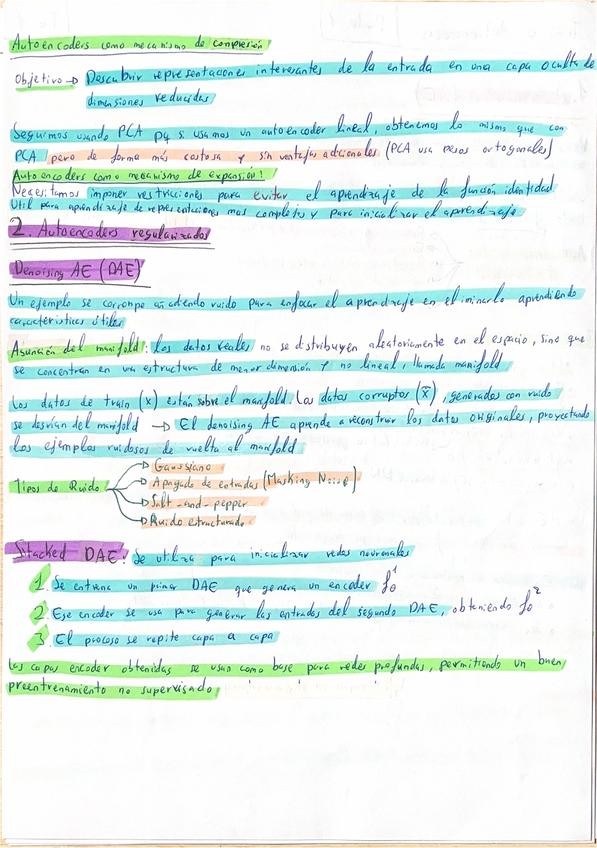 Autoencoders como mecanismo de compresión
Objetivo → Descubrir representaciones interesantes de la entrada en una capa oculta de
dimensiones reducidas
Seguimos usando PCA pq si usamos un autoencoder lineal, obtenemos lo mismo que con
PCA pero de forma más costosa y sin ventajas adicionales (PCA usa pesos ortogonales)
Autoencoders como mecanismo de expansión!
Necesitamos imponer restricciones para evitar el aprendizaje de la función identidad
Util para aprendizaje de representaciones mas completas y para inicializar el aprendizaje
2. Autoencoders regularizados
Denoising AE (DAE)
Un ejemplo se corrompe añadiendo ruido para enfocar el aprendizaje en eliminarlo aprendiendo
características útiles
Asunción del manifold: los datos reales no se distribuyen aleatoriamente en el espacio, sino que
se concentran en una estructura de menor dimensión y no lineal, llamada manifold
Los datos de train (x) están sobre el manifold. Los datos corruptos (x̃), generados con ruido
se desvían del manifold → El denoising AE aprende a reconstruir los datos originales, proyectando
los ejemplos ruidosos de vuelta al manifold
Tipos de Ruido
→ Gaussiano
→ Apagado de entradas (Masking Noise)
→ Salt-and-pepper
→ Ruido estructurado
Stacked DAE: Se utiliza para inicializar redes neuronales
1. Se entrena un primer DAE que genera un encoder fθ¹
2. Ese encoder se usa para generar las entradas del segundo DAE, obteniendo fθ²
3. El proceso se repite capa a capa
Las capas encoder obtenidas se usan como base para redes profundas, permitiendo un buen
preentrenamiento no supervisado